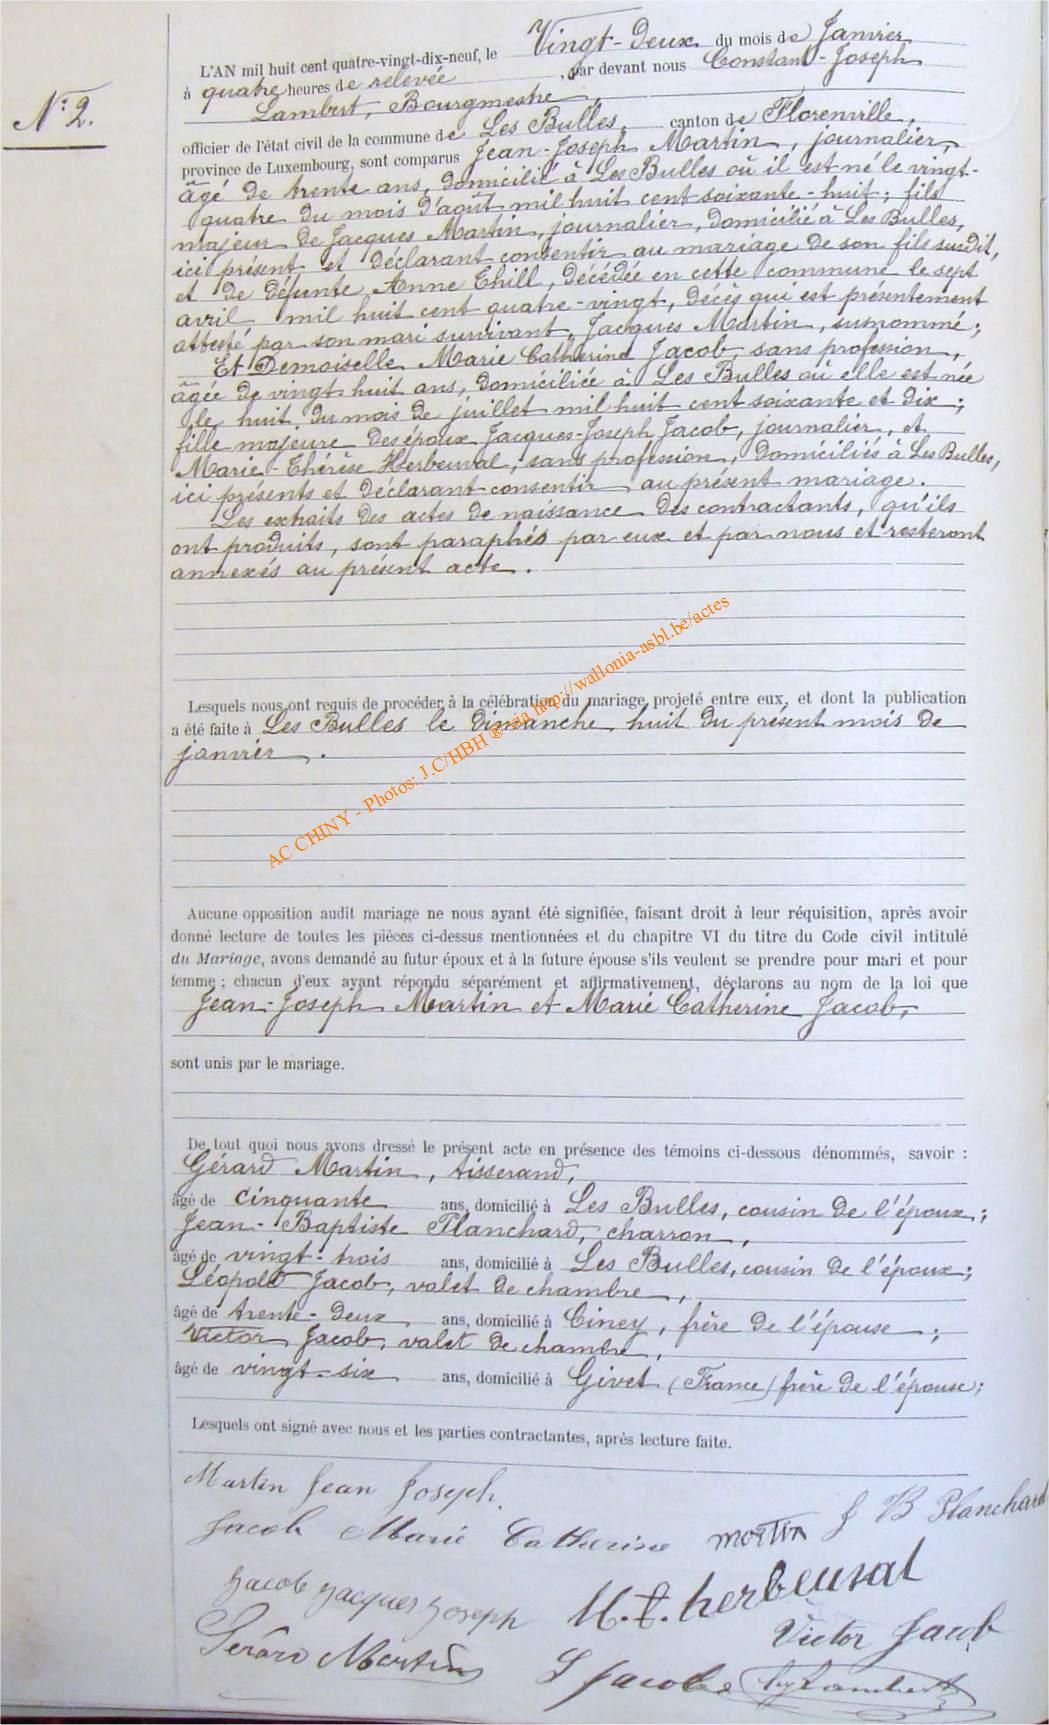 N° 2.
L'AN mil huit cent quatre-vingt-dix-neuf, le Vingt-Deux du mois de Janvier
à quatre heures de relevée, par devant nous Constant-Joseph
Lambert, Bourgmestre,
officier de l'état civil de la commune de Les Bulles, canton de Florenville,
province de Luxembourg, sont comparus Jean-Joseph Martin, journalier,
âgé de trente ans, domicilié à Les Bulles où il est né le vingt-
quatre du mois d'août mil huit cent soixante-huit; fils
majeur de Jacques Martin, journalier, domicilié à Les Bulles,
ici présent et déclarant consentir au mariage de son fils susdit,
et de défunte Anne Thill, décédée en cette commune le sept
avril mil huit cent quatre-vingt, décès qui est présentement
attesté par son mari survivant, Jacques Martin, susnommé;
Et Demoiselle Marie Catherine Jacob, sans profession,
âgée de vingt huit ans, domiciliée à Les Bulles où elle est née
le huit du mois de juillet mil huit cent soixante et dix;
fille majeure des époux Jacques-Joseph Jacob, journalier, et
Marie-Thérèse Herbeuval, sans profession, domiciliés à Les Bulles,
ici présents et déclarant consentir au présent mariage.
Les extraits des actes de naissance des contractants, qu'ils
ont produits, sont paraphés par eux et par nous et resteront
annexés au présent acte.
Lesquels nous ont requis de procéder à la célébration du mariage projeté entre eux, et dont la publication
a été faite à Les Bulles le dimanche huit du présent mois de
janvier.
AC CHINY - Photos: J.C/HBH ® via http://wallonia-asbl.be/actes
Aucune opposition audit mariage ne nous ayant été signifiée, faisant droit à leur réquisition, après avoir
donné lecture de toutes les pièces ci-dessus mentionnées et du chapitre VI du titre du Code civil intitulé
du Mariage, avons demandé au futur époux et à la future épouse s'ils veulent se prendre pour mari et pour
femme; chacun d'eux ayant répondu séparément et affirmativement, déclarons au nom de la loi que
Jean-Joseph Martin et Marie Catherine Jacob,
sont unis par le mariage.
De tout quoi nous avons dressé le présent acte en présence des témoins ci-dessous dénommés, savoir :
Gérard Martin, tisserand,
âgé de cinquante ans, domicilié à Les Bulles, cousin de l'époux;
Jean-Baptiste Planchard, charron,
âgé de vingt-trois ans, domicilié à Les Bulles, cousin de l'époux;
Léopold Jacob, valet de chambre,
âgé de trente-deux ans, domicilié à Ciney, frère de l'épouse;
Victor Jacob, valet de chambre,
âgé de vingt-six ans, domicilié à Givet (France) frère de l'épouse;
Lesquels ont signé avec nous et les parties contractantes, après lecture faite.
Martin Jean Joseph.
J B Planchard
Jacob Marie Catherine martin
Jacob Jacques Joseph M.t.herbeuval
Gérard Martin Victor Jacob
L Jacob Lambert